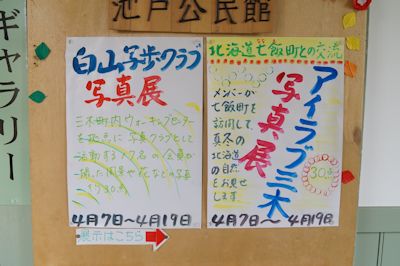 池戸公民館
ギャラリー
白山写歩クラブ
写真展
三木町内ウォーキングセンター
を拠点に写真クラブとして
活動する17名の会員が
撮った風景や花などの写真
30点
4月7日～4月19日
展示はこちら
北海道七飯町との交流
アイラブ三木
写真展
メンバーが
七飯町を
訪問して、
真冬の
北海道
の自然
をお見せ
します
30点
4月7日～4月19日